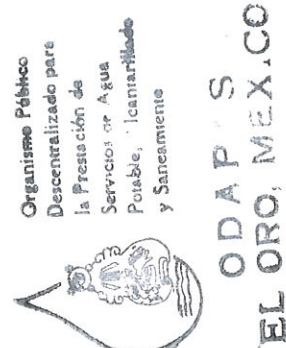 Organismo Público
Descentralizado para
la Prestación de
Servicios de Agua
Potable, lcantarillado
y Saneamiento
ODAP S
EL ORO, MEX.CO